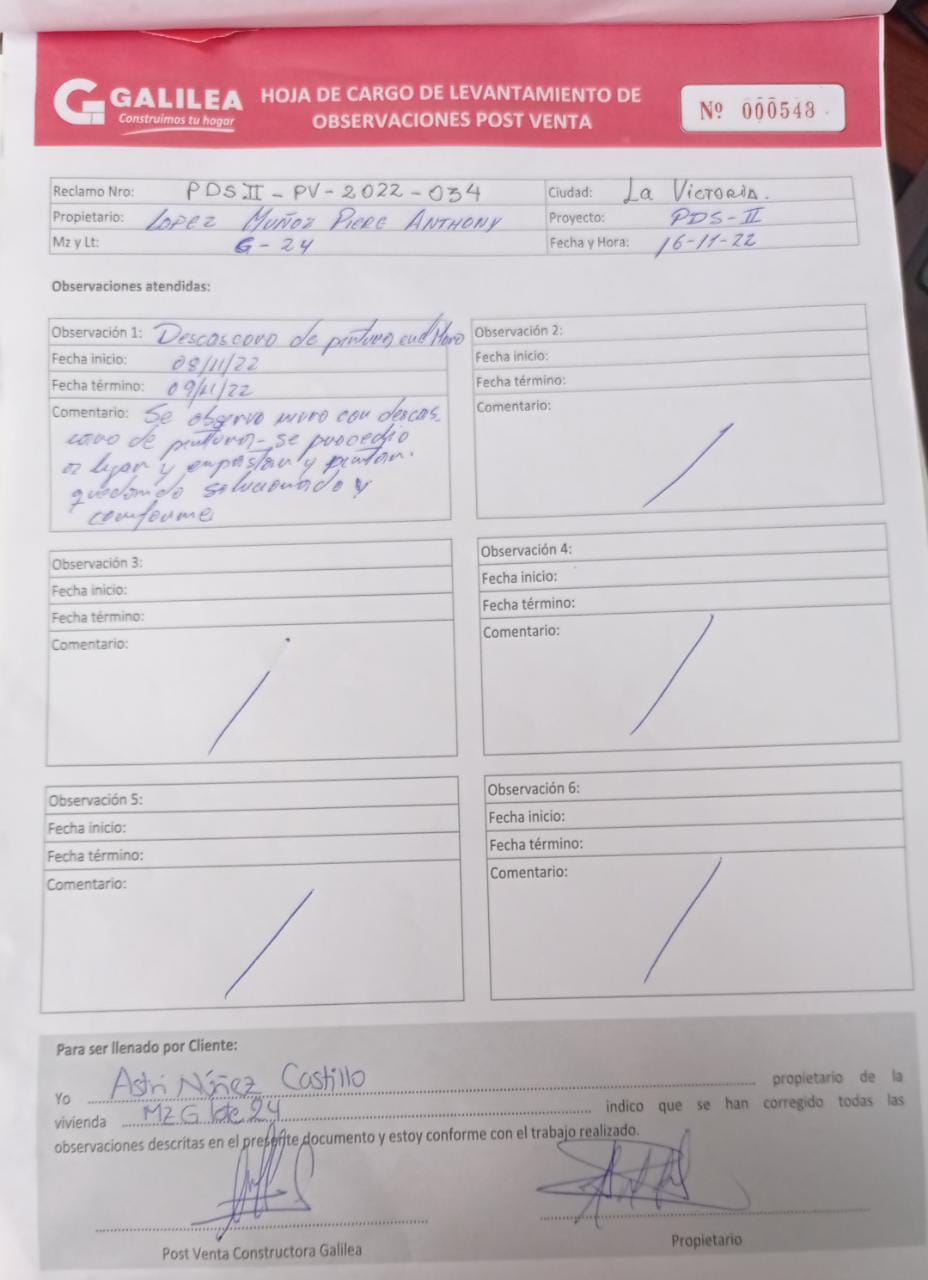 GALILEA
Construimos tu hogar
HOJA DE CARGO DE LEVANTAMIENTO DE
OBSERVACIONES POST VENTA
Nº 000548
Reclamo Nro: PDS II - PV - 2022 - 034
Ciudad: La Victoria.
Propietario: Lopez Muñoz Piere Anthony
Proyecto: PDS-II
Mz y Lt: G - 24
Fecha y Hora: 16-11-22
Observaciones atendidas:
Observación 1: Descascaro de pintura en el Muro
Fecha inicio: 08/11/22
Fecha término: 09/11/22
Comentario: Se observo muro con descas
caro de pintura - se procedio
a lijar y enpastar y pintar.
quedando solucionado y
conforme
Observación 2:
Fecha inicio:
Fecha término:
Comentario:
Observación 3:
Fecha inicio:
Fecha término:
Comentario:
Observación 4:
Fecha inicio:
Fecha término:
Comentario:
Observación 5:
Fecha inicio:
Fecha término:
Comentario:
Observación 6:
Fecha inicio:
Fecha término:
Comentario:
Para ser llenado por Cliente:
Yo Astri Núñez Castillo propietario de la
vivienda Mz G lote 24 indico que se han corregido todas las
observaciones descritas en el presente documento y estoy conforme con el trabajo realizado.
Post Venta Constructora Galilea
Propietario